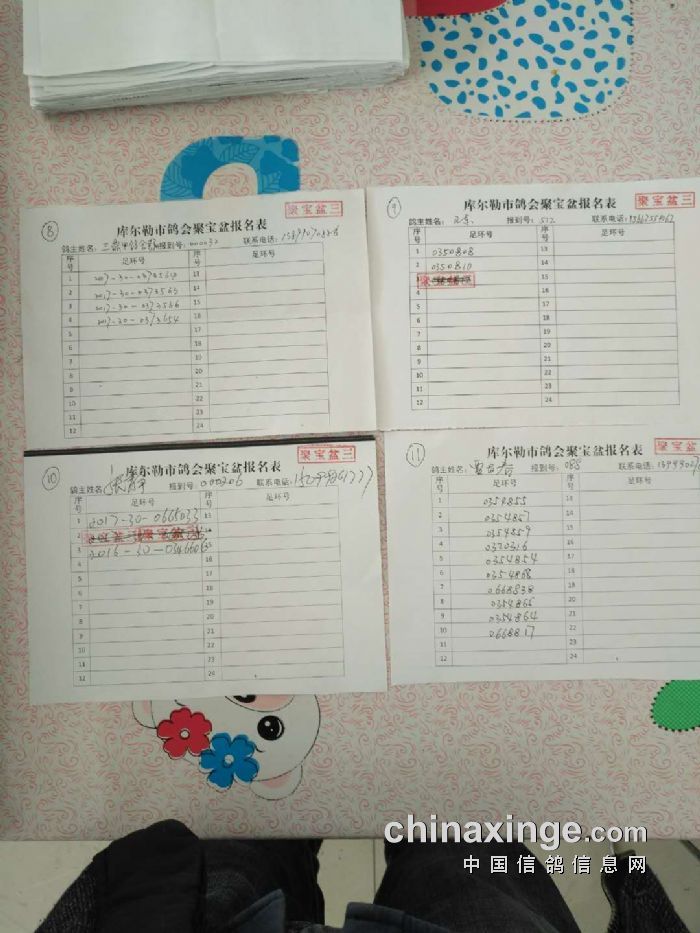 ⑧
聚宝盆三
库尔勒市鸽会聚宝盆报名表
鸽主姓名: 报到号: 000032 联系电话:
序号 足环号 序号 足环号
1 2017-30- 13
2 2017-30-0373565 14
3 2017-30-0373556 15
4 2017-30-0373654 16
5 17
6 18
7 19
8 20
9 21
10 22
11 23
12 24
⑨
聚宝盆三
库尔勒市鸽会聚宝盆报名表
鸽主姓名: 报到号: 512 联系电话:
序号 足环号 序号 足环号
1 0350808 13
2 0350810 14
3 15
4 16
5 17
6 18
7 19
8 20
9 21
10 22
11 23
12 24
⑩
聚宝盆三
库尔勒市鸽会聚宝盆报名表
鸽主姓名: 报到号: 000206 联系电话:
序号 足环号 序号 足环号
1 2017-30-0665033 13
2 聚宝盆三 14
3 2016-30- 15
4 16
5 17
6 18
7 19
8 20
9 21
10 22
11 23
12 24
⑪
聚宝盆三
库尔勒市鸽会聚宝盆报名表
鸽主姓名: 报到号: 088 联系电话:
序号 足环号 序号 足环号
1 0354855 13
2 0354857 14
3 0354859 15
4 0370316 16
5 0354854 17
6 0354868 18
7 0668838 19
8 0354866 20
9 0354864 21
10 0668817 22
11 23
12 24
chinaxinge.com
中国信鸽信息网